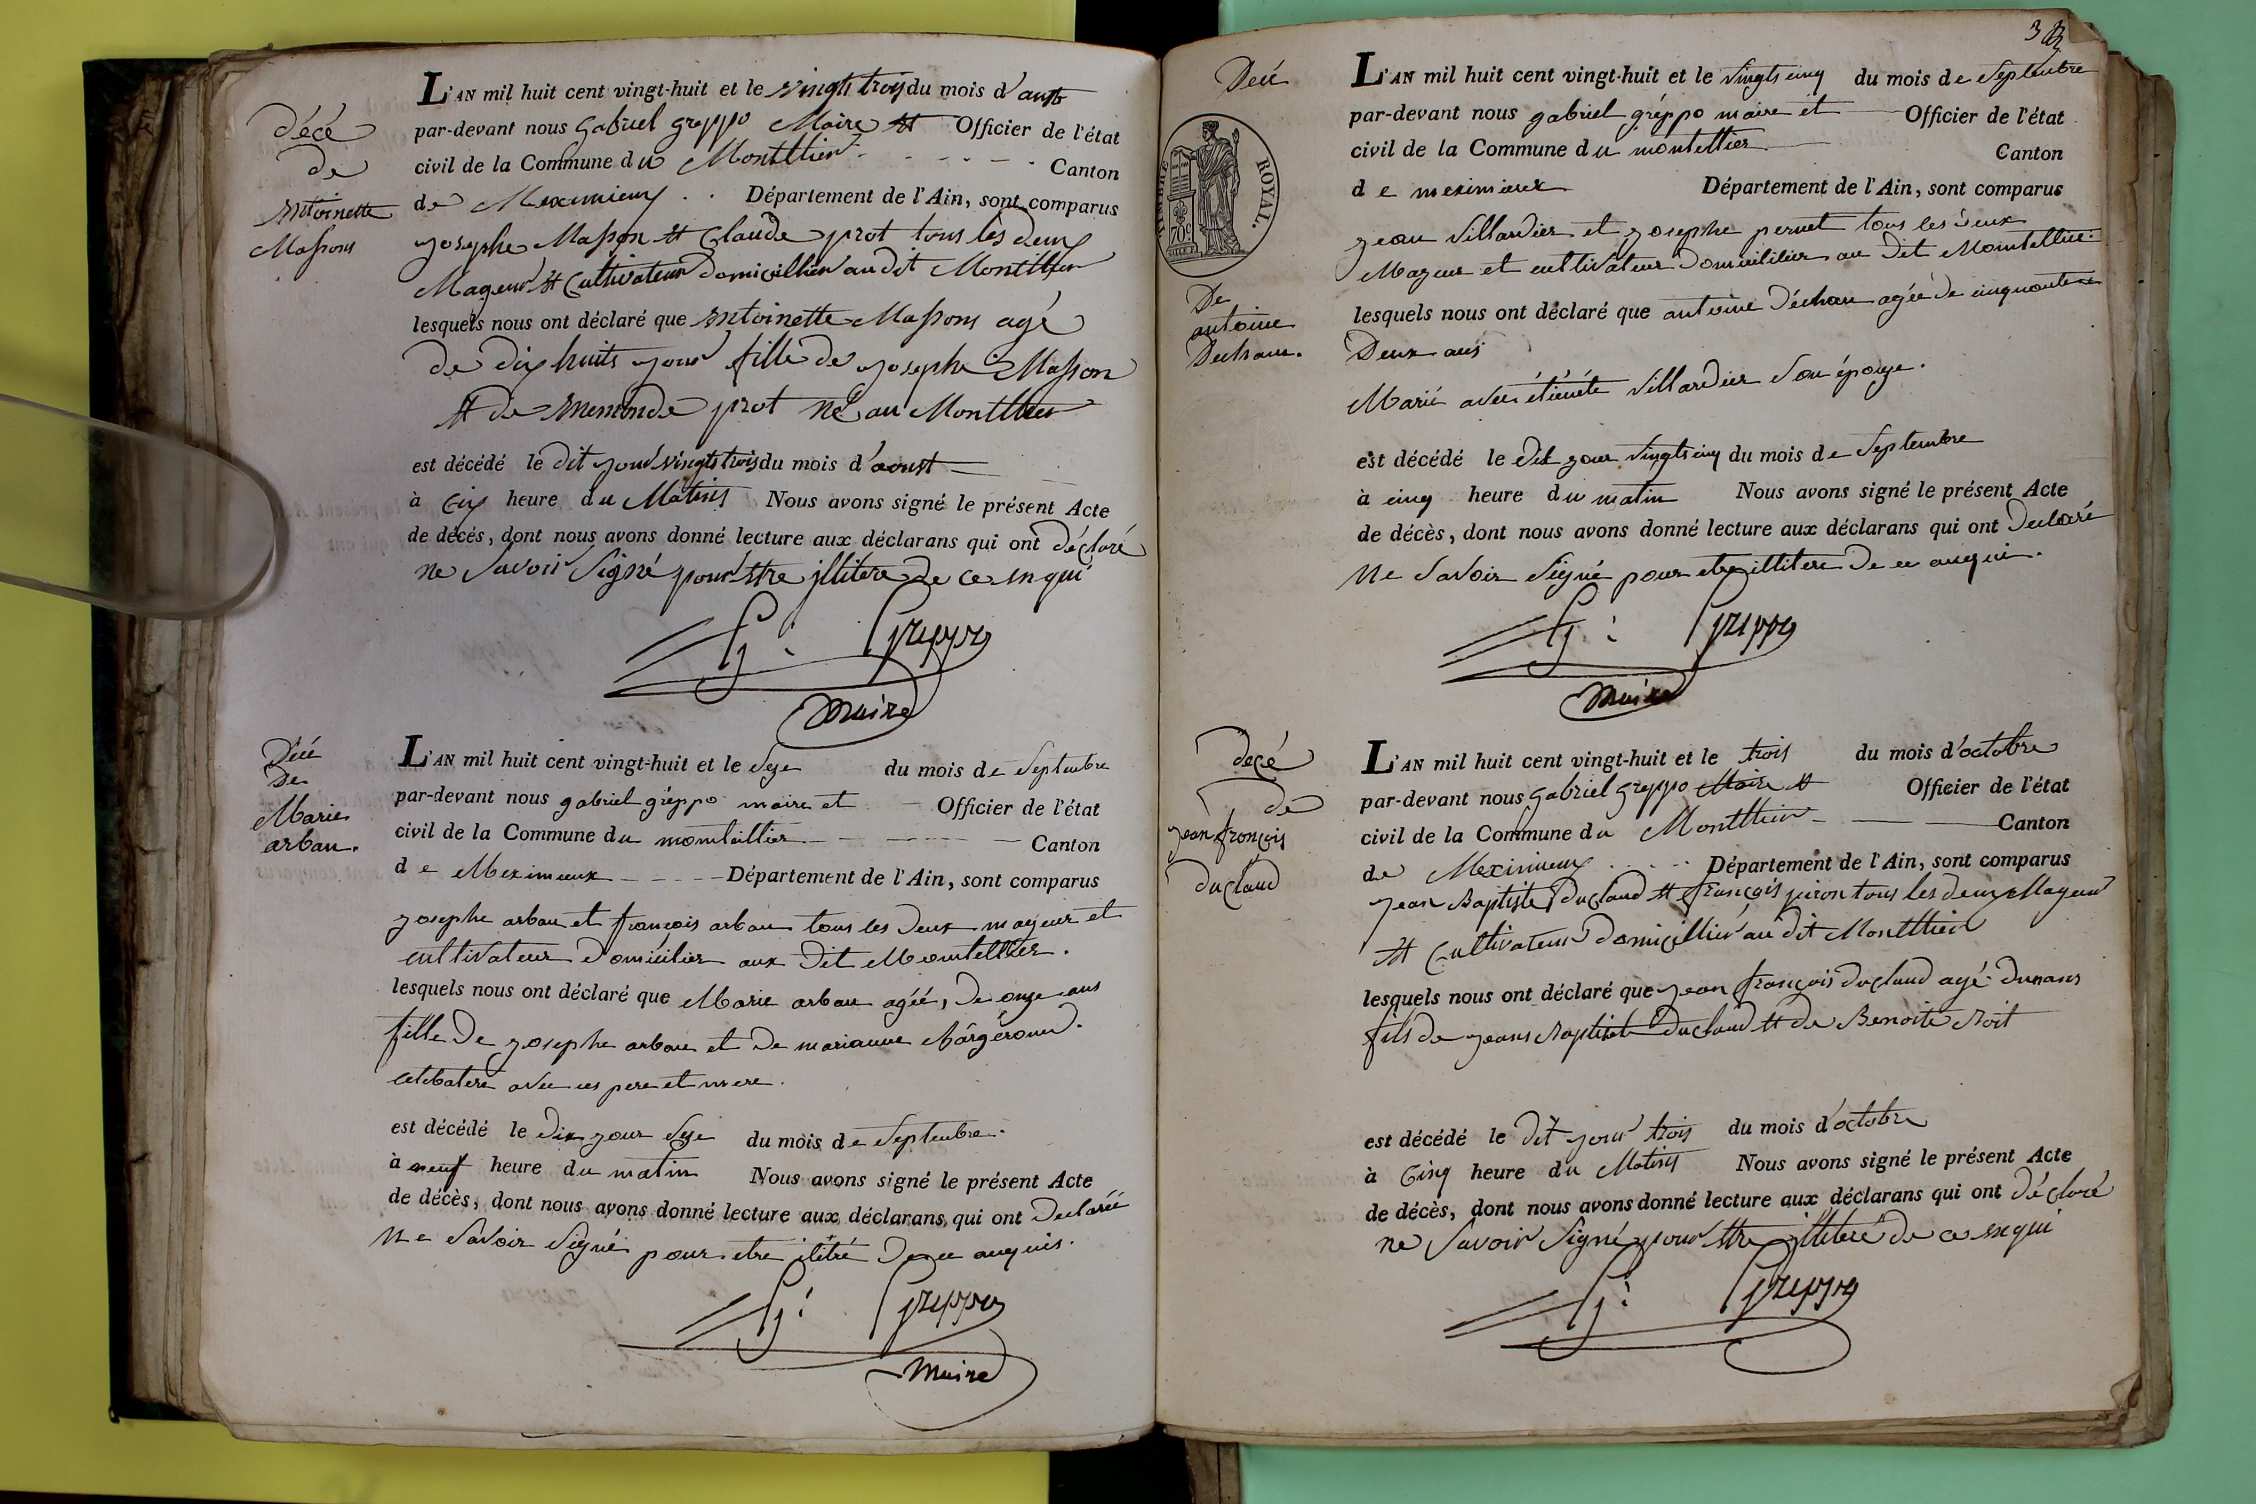 décé
de
antoinette
Massons
L'AN mil huit cent vingt-huit et le vingts trois du mois d'aust
par-devant nous gabriel greppo Maire et Officier de l'état
civil de la Commune du Montellier Canton
de Meximieux Département de l'Ain, sont comparus
josephe Masson et Claude prot tous les deux
Mageur et Cultivateur domicillier au dit Montellier
lesquels nous ont déclaré que antoinette Massons agé
de dix huits jour fille de josephe Masson
et de prot né au Montellier
est décédé le dit jour vingts trois du mois d'aoust
à heure du Matins Nous avons signé le présent Acte
de décès, dont nous avons donné lecture aux déclarans qui ont déclaré
ne Savoir Signé pour etre illitere de ce enqui
G: Greppo
Maire
Décé
De
Marie
arban.
L'AN mil huit cent vingt-huit et le Seze du mois de Septembre
par-devant nous gabriel gréppo maire et Officier de l'état
civil de la Commune du montellier Canton
de Meximieux Département de l'Ain, sont comparus
josephe arban et françois arban tous les deux mageur et
cultivateur domicilier aux dit Montellier.
lesquels nous ont déclaré que Marie arban agéé, de onze ans
fille De josephe arban et de marianne
celibatere avec ces pere et mere.
est décédé le dix jour Seze du mois de Septembre.
à neuf heure du matin Nous avons signé le présent Acte
de décès, dont nous avons donné lecture aux déclarans qui ont Declaréé
Ne Savoir Signé pour etre ilitré De ce anquis.
G: Greppo
Maire
33
Décé
TIMBRE ROYAL.
70c
De
antoine
Dechaux.
L'AN mil huit cent vingt-huit et le vingts cinq du mois de Septembre
par-devant nous gabriel gréppo maire et Officier de l'état
civil de la Commune du montellier Canton
de meximieux Département de l'Ain, sont comparus
jean Villardier et josephe pernet tous les deux
Mageur et cultivateur domicilier au dit Montellier.
lesquels nous ont déclaré que antoine agée de cinquante
Deux ans
Marié avec villardier Son épouze.
est décédé le dit jour vingts cinq du mois de Septembre
à cinq heure du matin Nous avons signé le présent Acte
de décès, dont nous avons donné lecture aux déclarans qui ont Declaré
Ne Savoir Signé pour etre illitere De ce anqui.
G: Greppo
Maire
decé
de
jean françois
duclaud
L'AN mil huit cent vingt-huit et le trois du mois d'octobre
par-devant nous gabriel greppo Maire et Officier de l'état
civil de la Commune du Montellier Canton
de Meximieux Département de l'Ain, sont comparus
jean Baptiste duclaud et françois tous les deux Mageur
et Cultivateur domicillier au dit Montellier
lesquels nous ont déclaré que jean françois duclaud agé dun ans
fils de jeans Baptiste duclaud et de Benoite
est décédé le dit jour trois du mois d'octobre
à Cinq heure du Matins Nous avons signé le présent Acte
de décès, dont nous avons donné lecture aux déclarans qui ont déclaré
ne Savoir Signé pour etre illiteré de ce enqui
G: Greppo